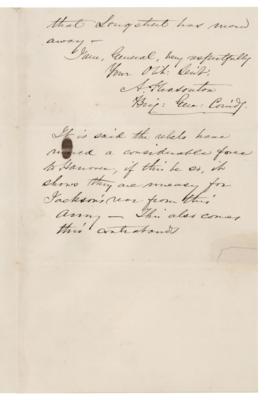 that Longstreet has moved
away —
I am, General, very respectfully
Your Obt. Servt.
A. Pleasonton
Brig: Gen: Com'dg.
It is said the rebels have
moved a considerable force
to Hanover, if this be so, it
shows they are uneasy for
Jackson's rear from this
Army — This also comes
this contraband